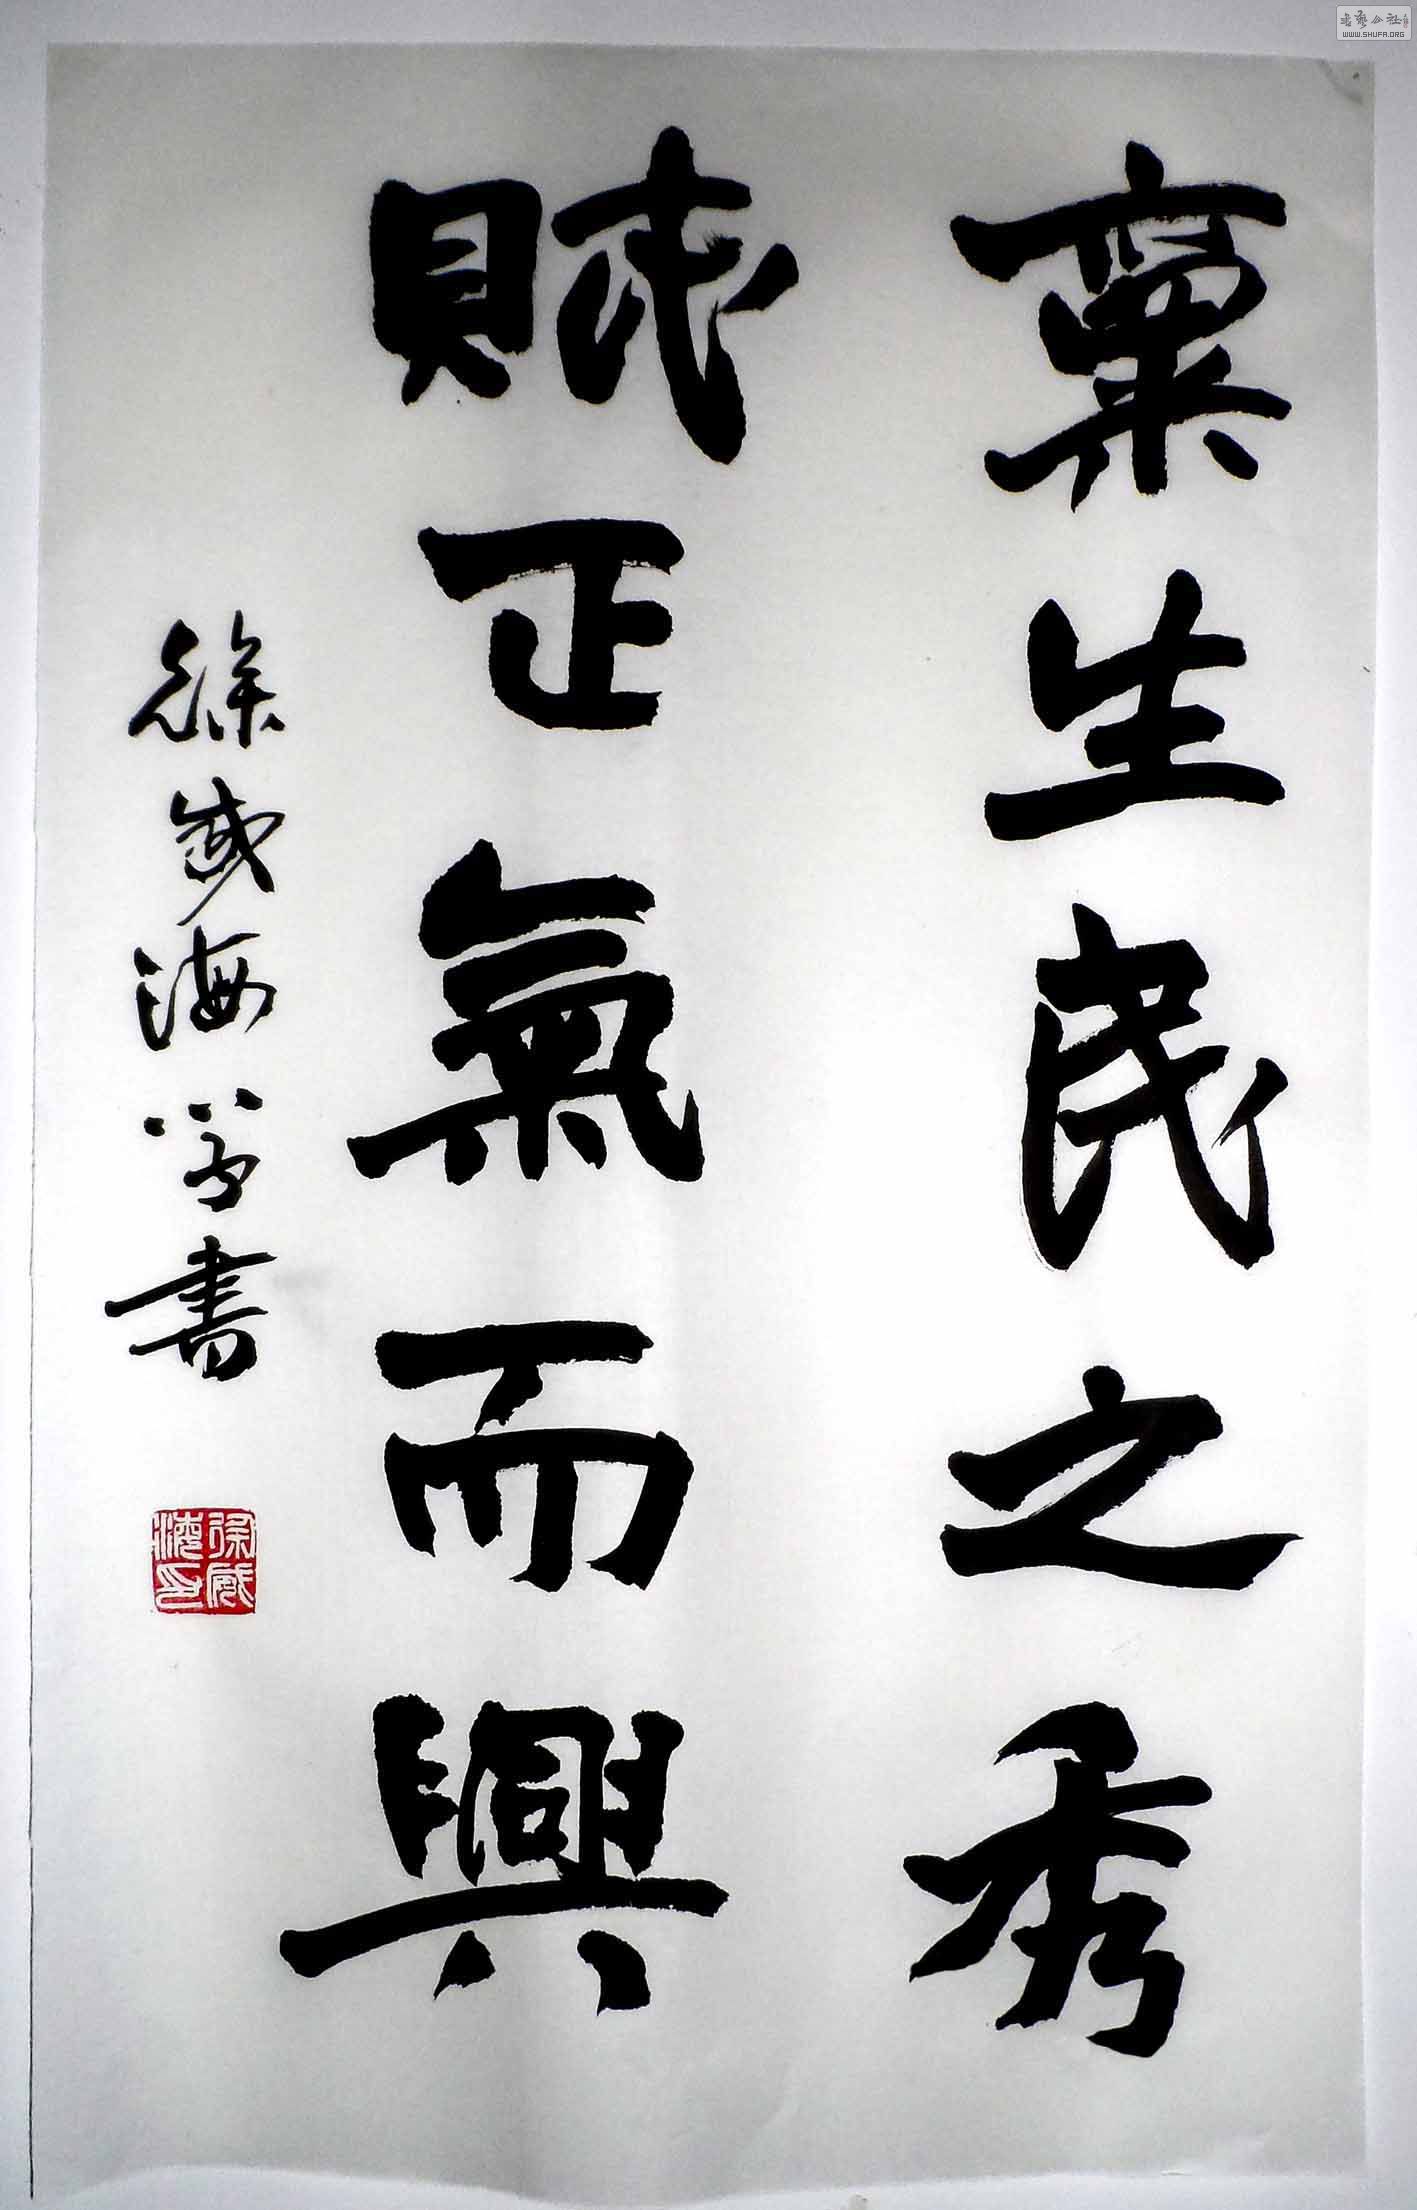 稟生民之秀
賦正氣而興
徐威海學書
徐威海印
書藝公社
WWW.SHUFA.ORG